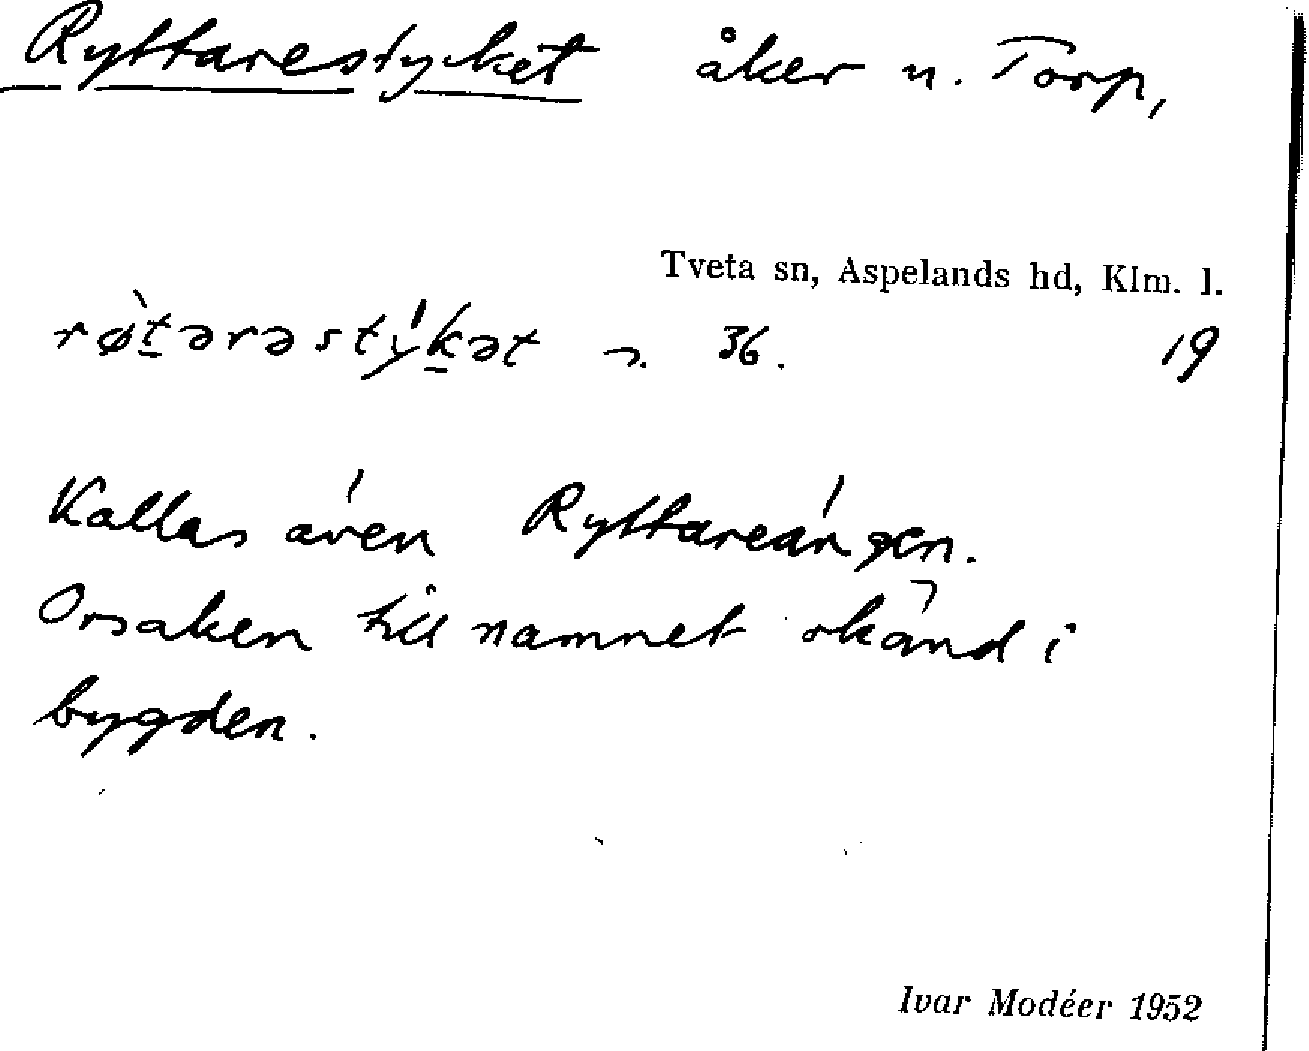 Ryttarestycket åker u. Torp,
Tveta sn, Aspelands hd, Klm. l.
rø̀t̠ərəstýk̠ət 36. 19
Kallas även Ryttareängen.
Orsaken till namnet okänd i
bygden.
Ivar Modéer 1952